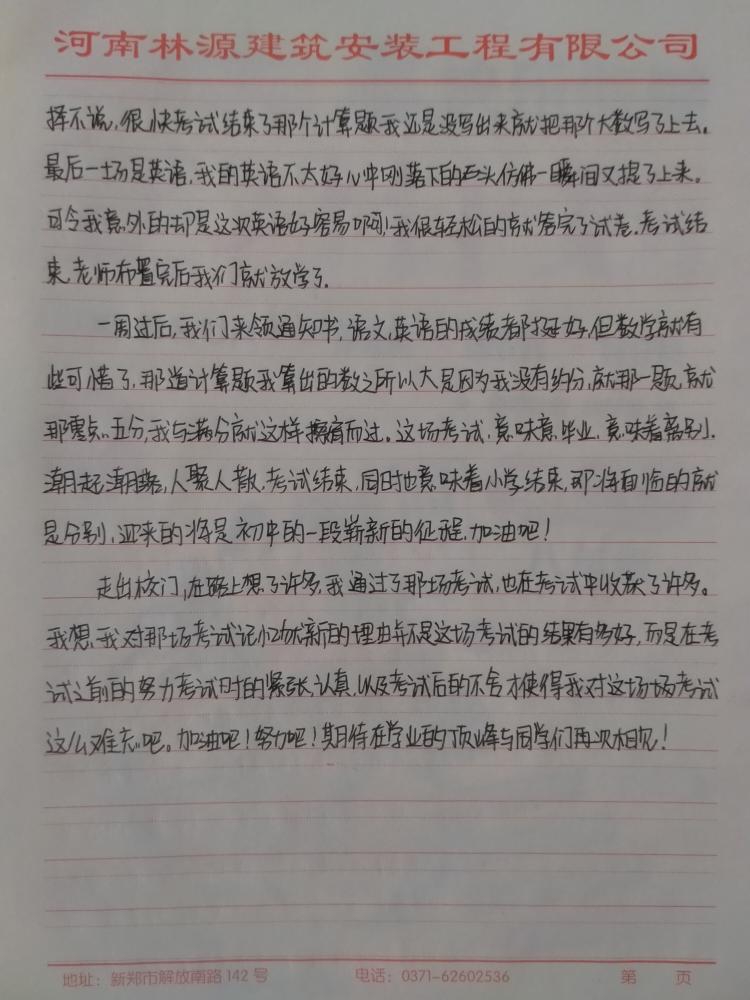 河南林源建筑安装工程有限公司
择不说，很快考试结束了那个计算题我还是没写出来就把那个大数写了上去。
最后一场是英语，我的英语不太好心中刚落下的石头仿佛一瞬间又提了上来。
可令我意外的却是这次英语好容易啊！我很轻松的就答完了试卷，考试结
束，老师布置完后我们就放学了。
一周过后，我们来领通知书，语文，英语的成绩都挺好，但数学就有
些可惜了，那道计算题我算出的数之所以大是因为我没有约分，就那一题，就
那零点五分，我与满分就这样擦肩而过。这场考试，意味意毕业，意味着离别，
潮起潮落，人聚人散，考试结束，同时也意味着小学结束，那将面临的就
是分别，迎来的将是初中的一段崭新的征程，加油吧！
走出校门，在路上想了许多，我通过了那场考试，也在考试中收获了许多。
我想，我对那场考试记忆犹新的理由并不是这场考试的结果有多好，而是在考
试之前的努力考试时的紧张，认真，以及考试后的不舍才使得我对这场场考试
这么难忘吧。加油吧！努力吧！期待在学业的顶峰与同学们再次相见！
地址：新郑市解放南路142号 电话：0371-62602536 第 页